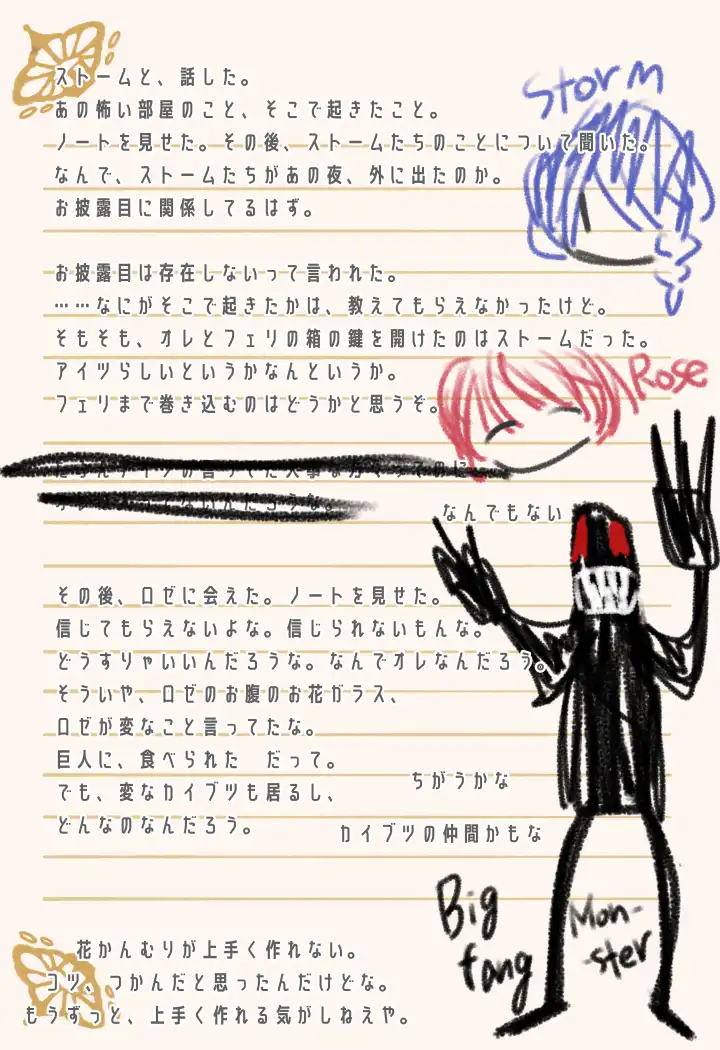 Storm
ストームと、話した。
あの怖い部屋のこと、そこで起きたこと。
ノートを見せた。その後、ストームたちのことについて聞いた。
なんで、ストームたちがあの夜、外に出たのか。
お披露目に関係してるはず。
お披露目は存在しないって言われた。
……なにがそこで起きたかは、教えてもらえなかったけど。
そもそも、オレとフェリの箱の鍵を開けたのはストームだった。
アイツらしいというかなんというか。
フェリまで巻き込むのはどうかと思うぞ。
Rose
なんでもない
その後、ロゼに会えた。ノートを見せた。
信じてもらえないよな。信じられないもんな。
どうすりゃいいんだろうな。なんでオレなんだろう。
そういや、ロゼのお腹のお花ガラス、
ロゼが変なこと言ってたな。
巨人に、食べられた　だって。
ちがうかな
でも、変なカイブツも居るし、
どんなのなんだろう。
カイブツの仲間かもな
Big fang
Mon-ster
花かんむりが上手く作れない。
コツ、つかんだと思ったんだけどな。
もうずっと、上手く作れる気がしねえや。